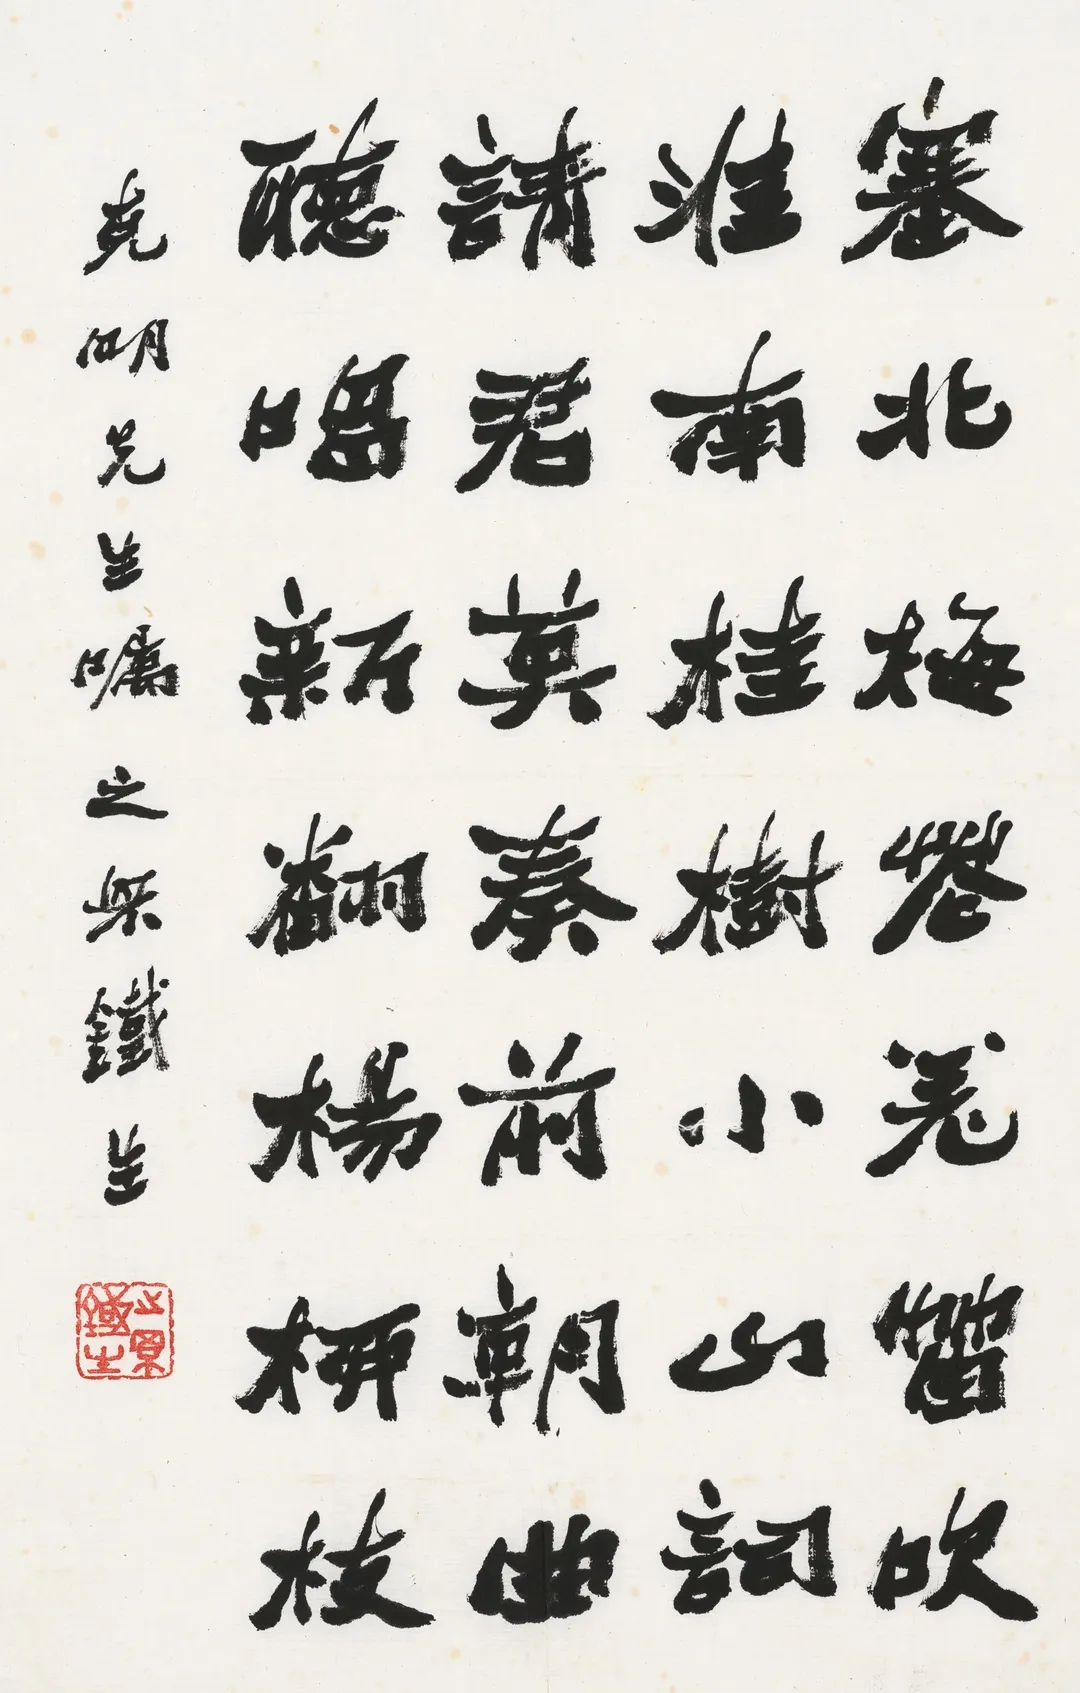 塞北梅花羌笛吹
淮南桂樹小山詞
請君莫奏前朝曲
聽唱新翻楊柳枝
克明先生囑 之
鐵生